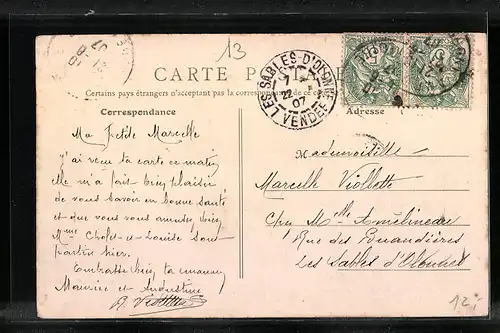 13
CARTE POSTALE
Certains pays étrangers n'acceptent pas la correspondance de ce
LES SABLES D'OLONNE
22
07
VENDEE
Correspondance
Adresse
Ma Petite Marcelle
j'ai reçu ta carte ce matin
elle m'a fait bien plaisir
de vous savoir en bonne santé
et que vous vous amusez bien
Mme Cholet et Louise sont
parties hier.
Embrasse bien ta maman
Maurice et Augustine
Mademoiselle
Marcelle Viollette
Chez Melle Amélineau
Rue des
Les Sables d'Olonnes
12,-